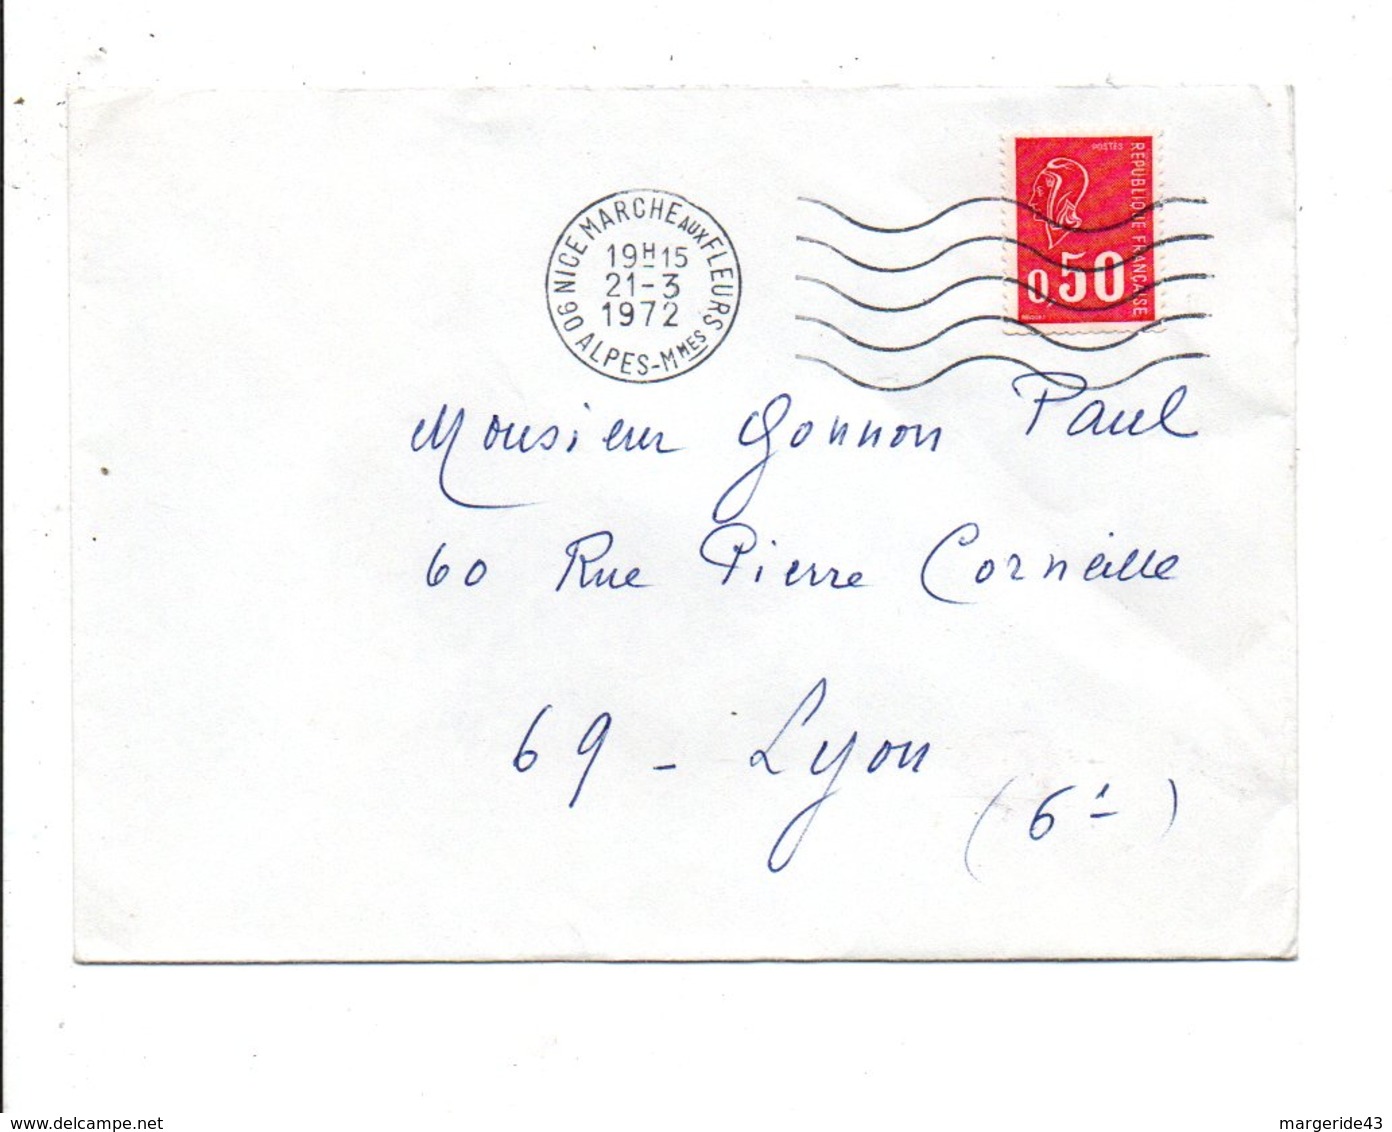 POSTES
REPUBLIQUE FRANCAISE
0,50
06 NICE MARCHE AUX FLEURS
19H15
21-3
1972
ALPES-MMES
Monsieur Gonnon Paul
60 Rue Pierre Corneille
69 - Lyon
(6è)
www.delcampe.net
margeride43